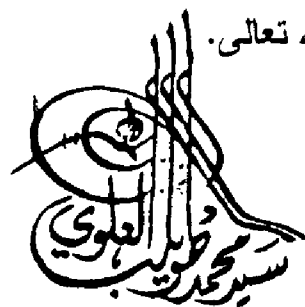 ، تعالى.
سيد محمد طويلب العلوي